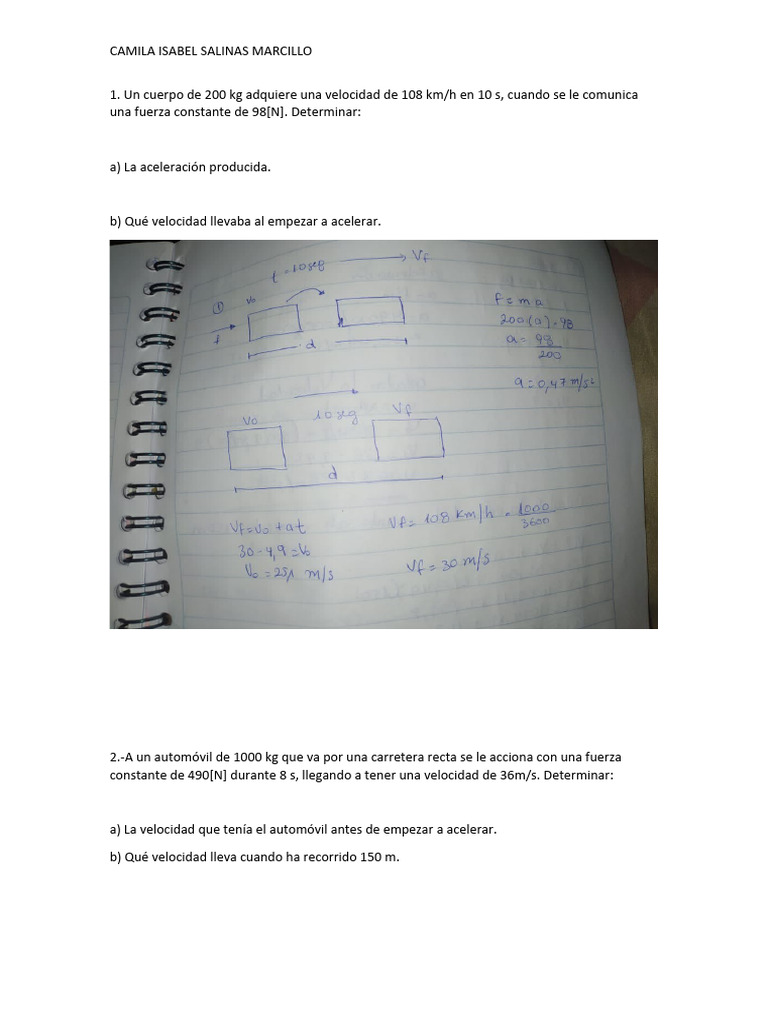 CAMILA ISABEL SALINAS MARCILLO
1. Un cuerpo de 200 kg adquiere una velocidad de 108 km/h en 10 s, cuando se le comunica
una fuerza constante de 98[N]. Determinar:
a) La aceleración producida.
b) Qué velocidad llevaba al empezar a acelerar.
t = 10 seg
Vf
①
Vo
f
d
F = m a
200·(a) = 98
a = 98
200
a = 0,47 m/s²
Vo
10 seg
Vf
d
Vf = Vo + at
30 - 4,9 = Vo
Vo = 25,1 m/s
Vf = 108 Km/h = 1000
3600
Vf = 30 m/s
2.-A un automóvil de 1000 kg que va por una carretera recta se le acciona con una fuerza
constante de 490[N] durante 8 s, llegando a tener una velocidad de 36m/s. Determinar:
a) La velocidad que tenía el automóvil antes de empezar a acelerar.
b) Qué velocidad lleva cuando ha recorrido 150 m.